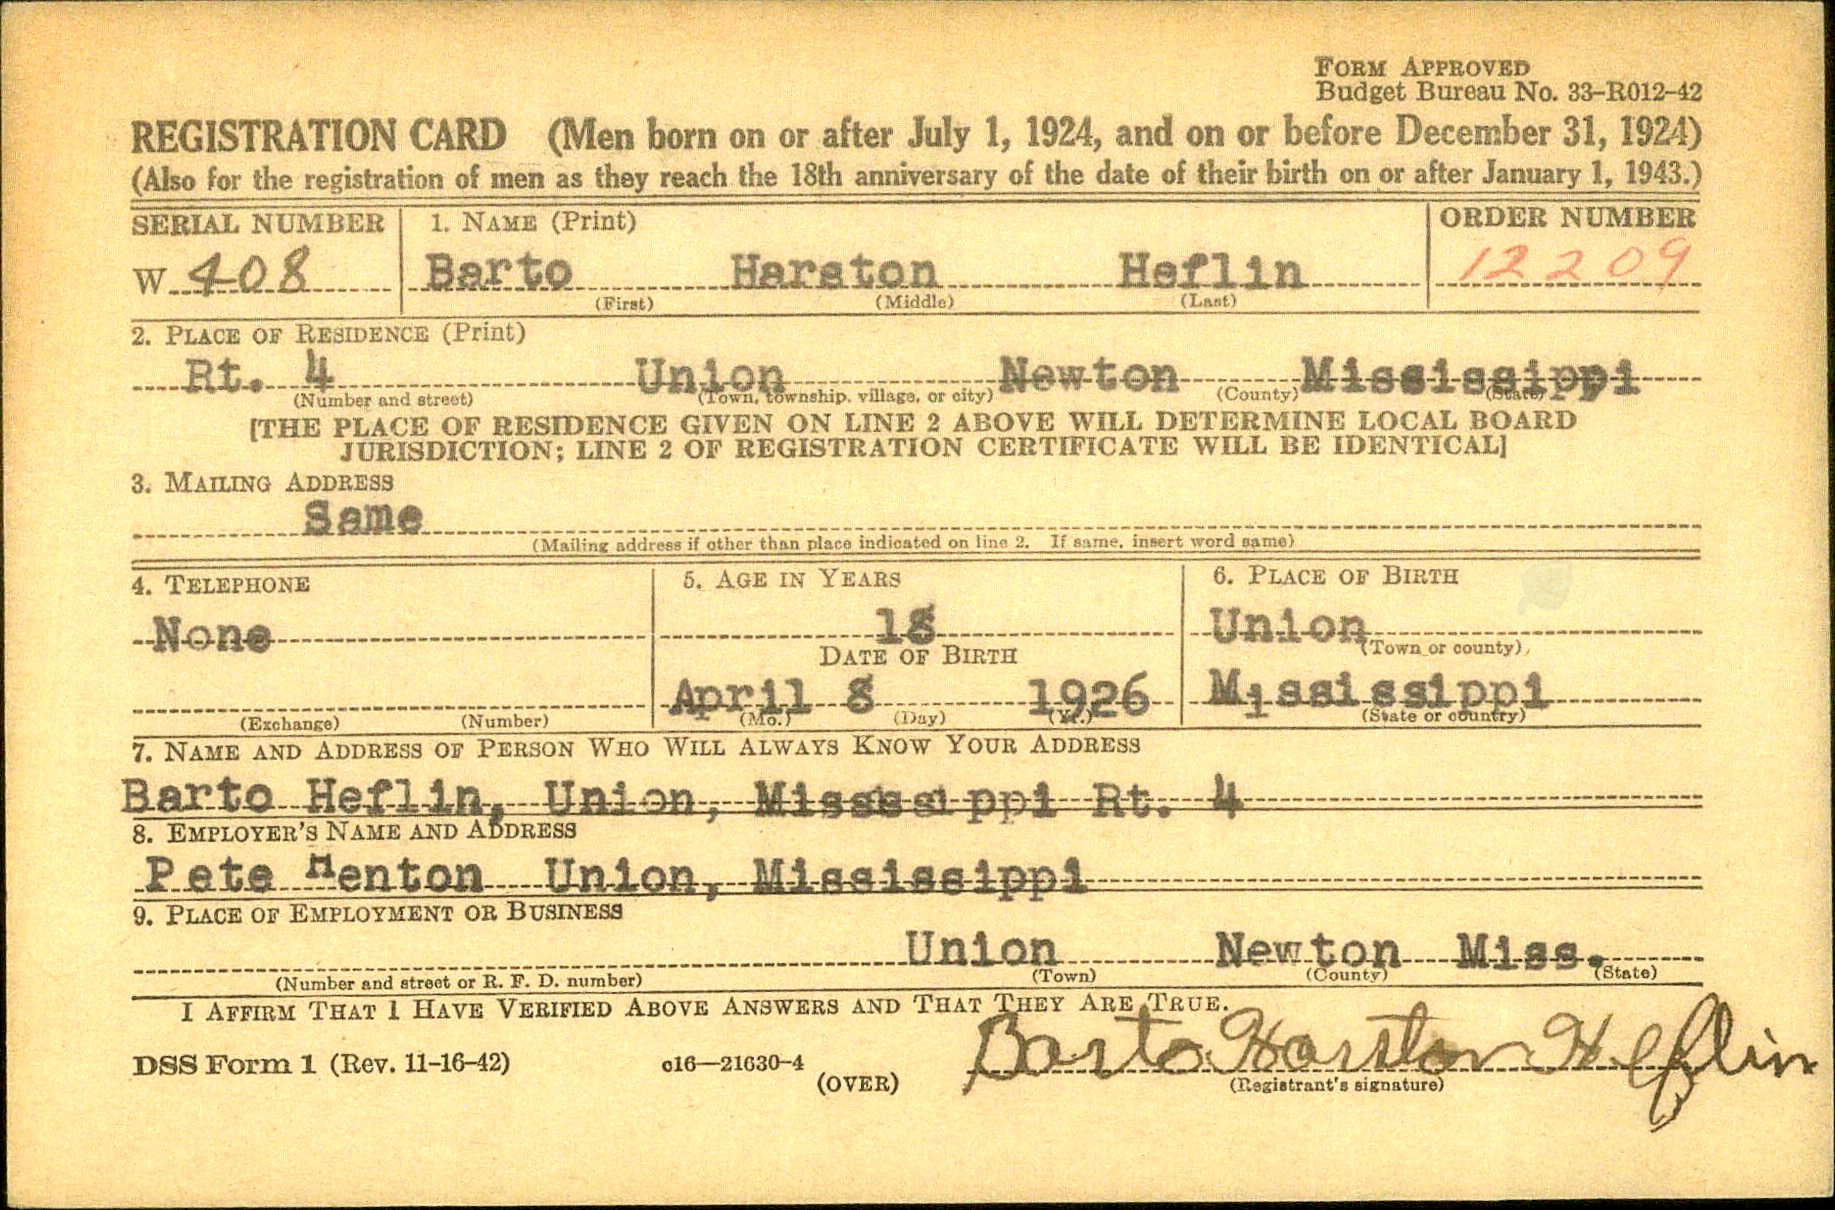 FORM APPROVED
Budget Bureau No. 33-R012-42
REGISTRATION CARD (Men born on or after July 1, 1924, and on or before December 31, 1924)
(Also for the registration of men as they reach the 18th anniversary of the date of their birth on or after January 1, 1943.)
SERIAL NUMBER 1. NAME (Print) ORDER NUMBER
W 408 Barto Harston Heflin 12209
(First) (Middle) (Last)
2. PLACE OF RESIDENCE (Print)
Rt. 4 Union Newton Mississippi
(Number and street) (Town, township, village, or city) (County) (State)
[THE PLACE OF RESIDENCE GIVEN ON LINE 2 ABOVE WILL DETERMINE LOCAL BOARD
JURISDICTION; LINE 2 OF REGISTRATION CERTIFICATE WILL BE IDENTICAL]
3. MAILING ADDRESS
Same
(Mailing address if other than place indicated on line 2. If same, insert word same)
4. TELEPHONE 5. AGE IN YEARS 6. PLACE OF BIRTH
None 18 Union
(Town or county)
DATE OF BIRTH
April 8 1926 Mississippi
(Exchange) (Number) (Mo.) (Day) (Yr.) (State or country)
7. NAME AND ADDRESS OF PERSON WHO WILL ALWAYS KNOW YOUR ADDRESS
Barto Heflin, Union, Misssssippi Rt. 4
8. EMPLOYER'S NAME AND ADDRESS
Pete Henton Union, Mississippi
9. PLACE OF EMPLOYMENT OR BUSINESS
Union Newton Miss.
(Number and street or R. F. D. number) (Town) (County) (State)
I AFFIRM THAT I HAVE VERIFIED ABOVE ANSWERS AND THAT THEY ARE TRUE.
DSS Form 1 (Rev. 11-16-42) c16—21630-4 (OVER)
Barto Harston Heflin
(Registrant's signature)